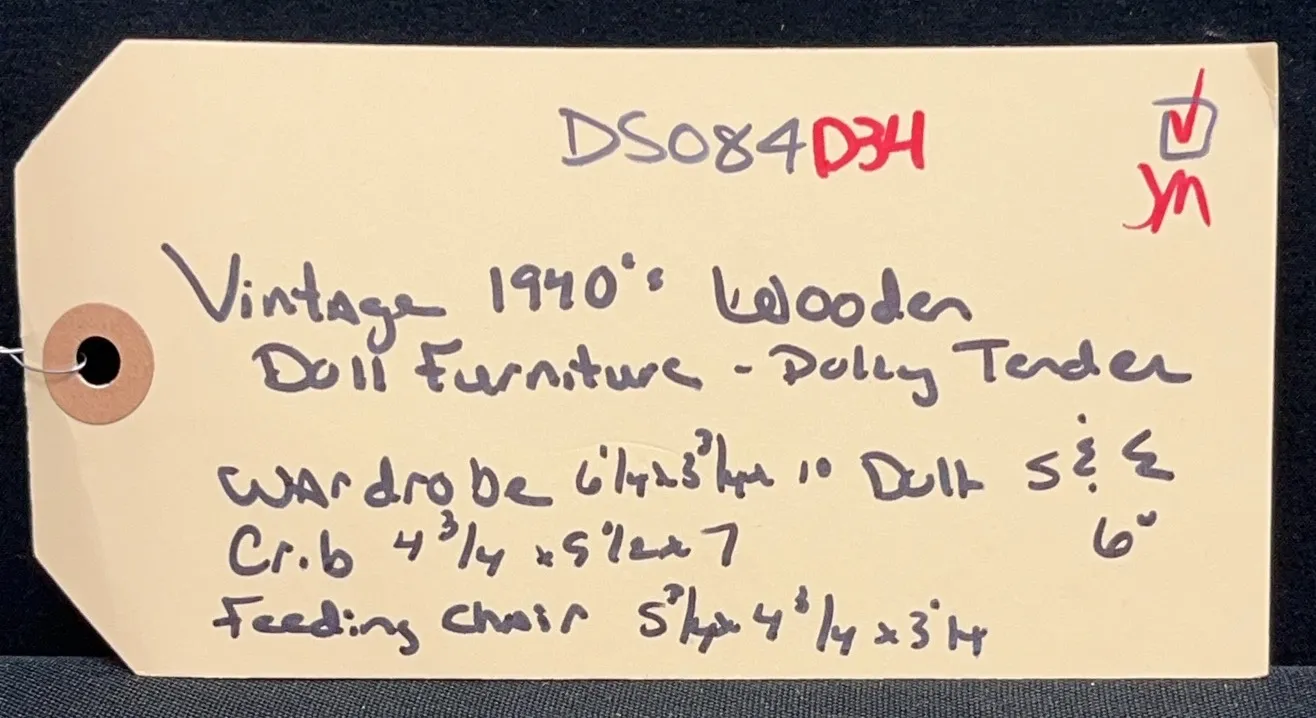 DS084D34
Vintage 1940's Wooden
Doll Furniture - Dolly Tender
Wardrobe 6 1/4 x 3 3/4 x 10 Doll 5
Crib 4 3/4 x 5 1/2 x 7 6"
Feeding Chair 5 3/4 x 4 3/4 x 3 1/4